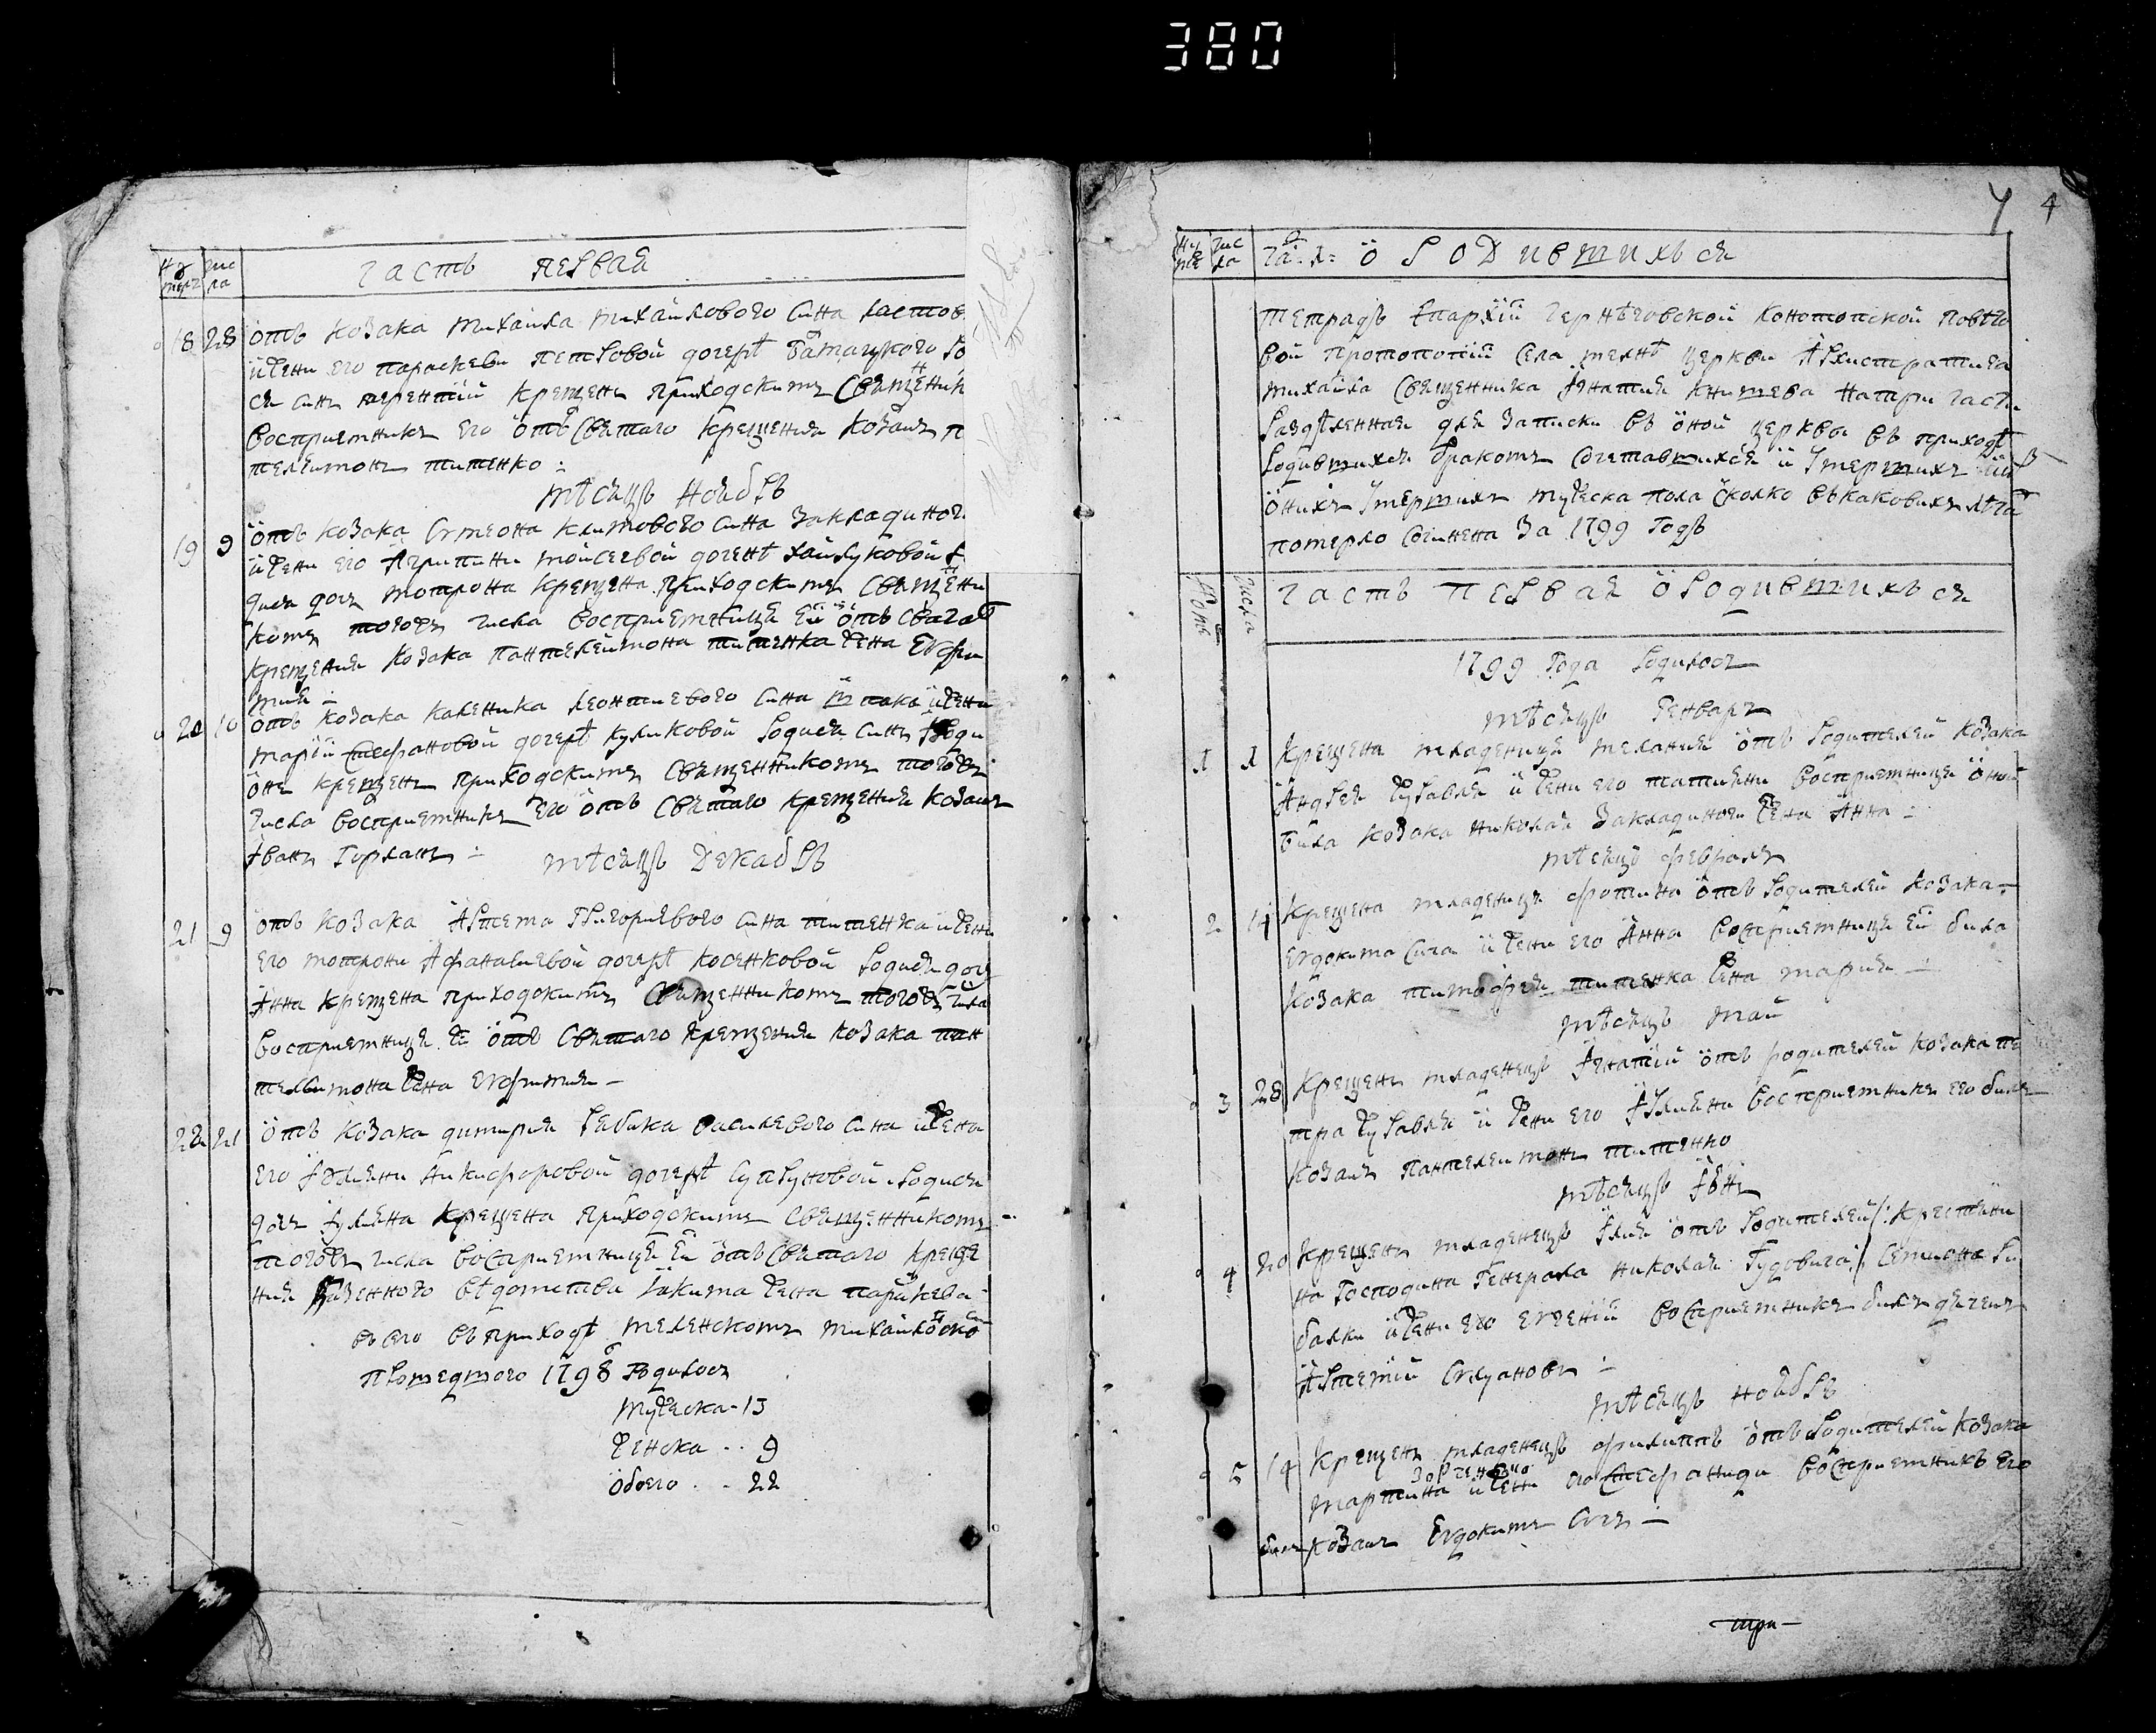 380
Нумеръ Числа Часть Первая
18 28 отъ козака Михаила Михайлового сина Ластов
и жени его Параскеви Петровой дочерѣ Бамацкого ро
ся синъ Терентїй крещенъ приходскимъ священик
восприемникъ его отъ святаго крещения козакъ П
телеимонъ Титенко :
мѣсяцъ Ноябрь
19 9 отъ козака Симеона Климового сина Закладиног
и жени его Агрипини Мойсеевой дочерѣ Хайлуковой
дися дочъ Мотрона крещена приходскимъ священи
комъ тогожъ числа восприемница ей отъ свягат
крещения козака Пантелеймона Титенка жена Евфи
мия –
20 10 отъ козака Каленика Леонтиевого сина и жени
Марїй Стефановой дочерѣ Куликовой родися синъ Роди
онъ крещенъ приходскимъ священникомъ тогожъ
числа восприемникъ его отъ святаго крещения козакъ
Іванъ Горланъ :
мѣсяцъ Декабрь
21 9 отъ козака Артема Григориевого сина Титенка и жени
его Мотрони Афанасиевой дочерѣ Косенковой родися дочъ
Анна крещена приходскимъ священникомъ тогожъ чила
восприемница ей отъ святаго крещения козака Пан
телеимона жена Евфимия –
22 21 отъ козака Димитрия Рябика Василевого сина и жени
его Іулиени Никифоровой дочерѣ Супруновой родися
дочъ Іулиена крещена приходскимъ священникомъ
тогожъ числа восприемница ей отъ святаго креще
ния казенного вѣдомства Іакима жена Параскева
всего въ приходѣ меленскомъ Михайловско
прошедшого 1798 родилось
мужеска - 13
женска .. 9
обоего .. 22
4 4
Числа Ча: 1: о Родившихъся
Тетрадъ Епархїи Чернѣговской Конотопской повѣто
вой протопопїи села Мелнѣ церкви Архистратига
Михаила священника Ігнатия Книшева на три части
раздѣленная для записки въ оной церквы въ приходѣ
родившихся бракомъ сочетавшихся и умершихъ
онихъ умершихъ мужеска пола сколко въ каковихъ лѣта
померло сочинена за 1799 годъ
числа Часть первая о родившихъся
1799 года родилось
мѣсяцъ Генварь
1 1 Крещена младеница Мелания отъ родителей козака
Андрея Журавля и жени его Татияни восприемница оной
била козака Николая Закладиного жена Анна :
мѣсяцъ Февраль
2 14 Крещена младеница Фотина отъ родителей козака
Евдокима Сича и жени его Анна восприемница ей била
козака Тимофея Титенка жена Мария –
мѣсяцъ Май
3 28 Крещенъ младенецъ Ігнатїй отъ родителей козака Пе
тра Журавля и жени его Іулияни восприемникъ его билъ
козакъ Пантелеимонъ Титенко
мѣсяцъ Іюнъ
4 20 Крещенъ младенецъ Илия отъ родителей /: крестяни
на господина генерала Николая Гудовича :/ Семиона Ри
балки и жени его Евгенїи восприемникъ билъ дячекъ
Артемїй Силуановъ :
мѣсяцъ Ноябрь
5 14 Крещенъ младенецъ Филиппъ отъ родителей козака
Мартина и жени его Стефаниди восприемникъ его
билъ козакъ Евдокимъ Сичъ –
три –